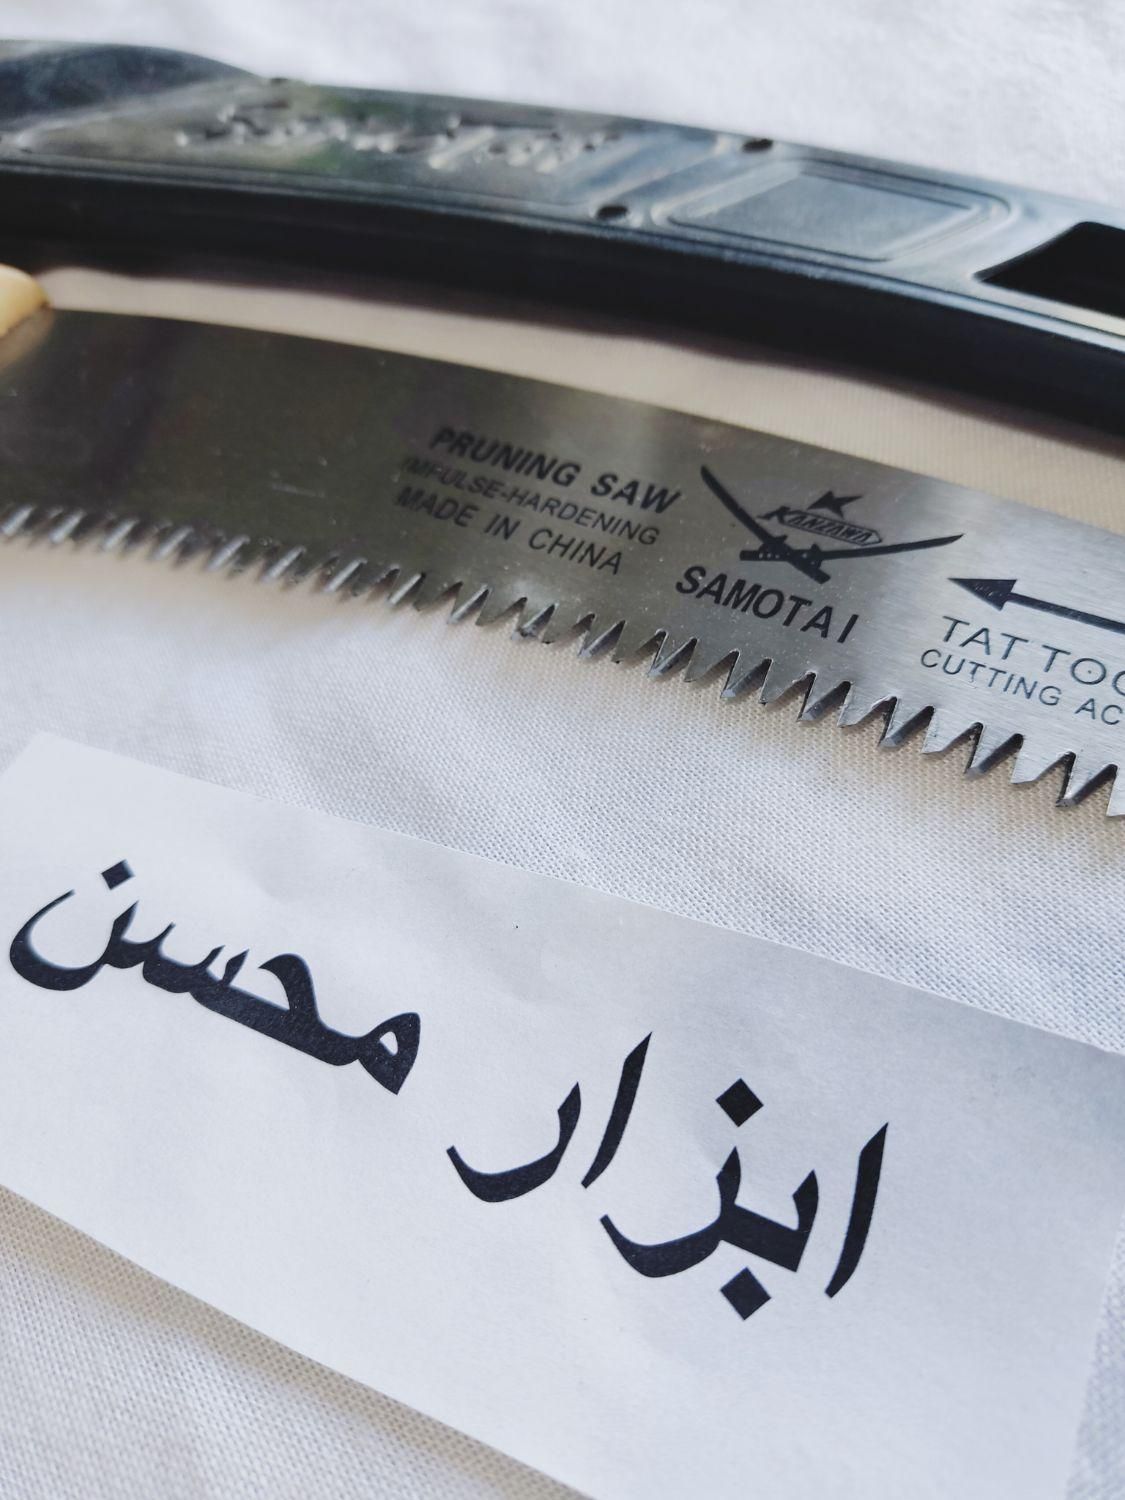 PRUNING SAW
IMPULSE-HARDENING
MADE IN CHINA
KANZAWA
SAMOTAI
TAT TOO
CUTTING AC
ابزار محسن